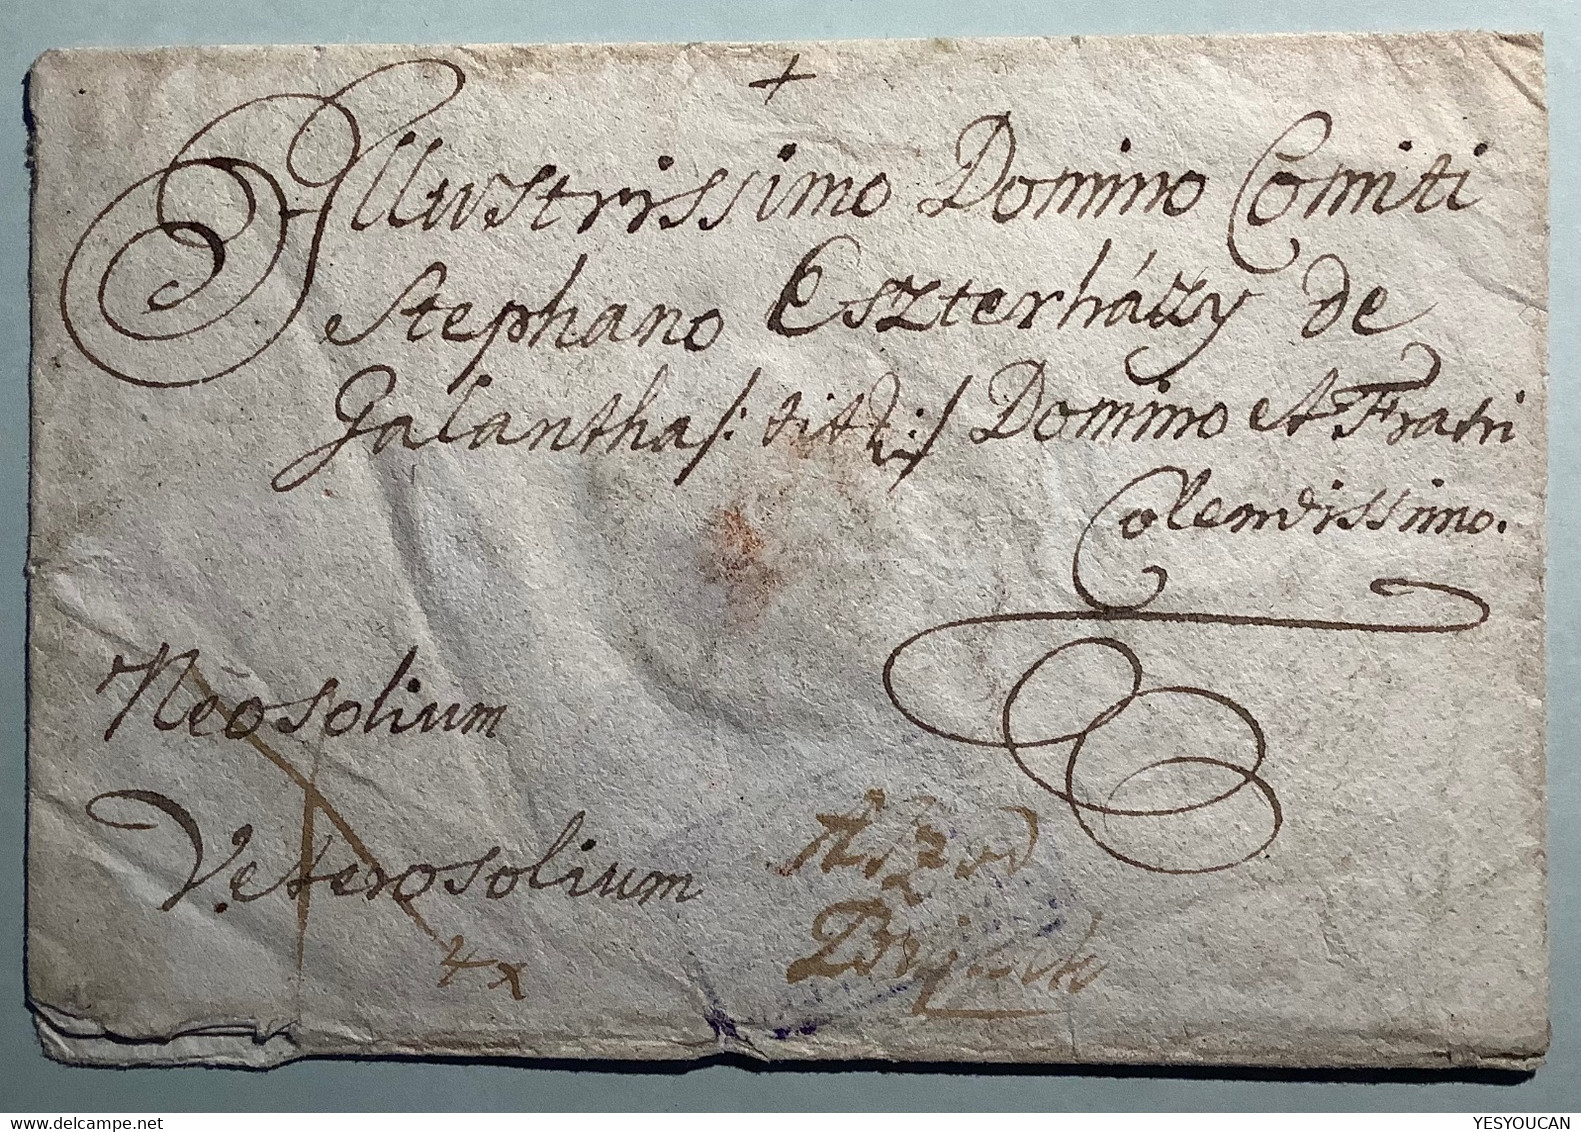 +
Illustrissimo Domino Comiti
Stephano Eszterházy de
Galantha /: titt: :/ Domino et Fratri
Colendissimo.
Neosolium
Veterosolium
4x
www.delcampe.net
YESYOUCAN